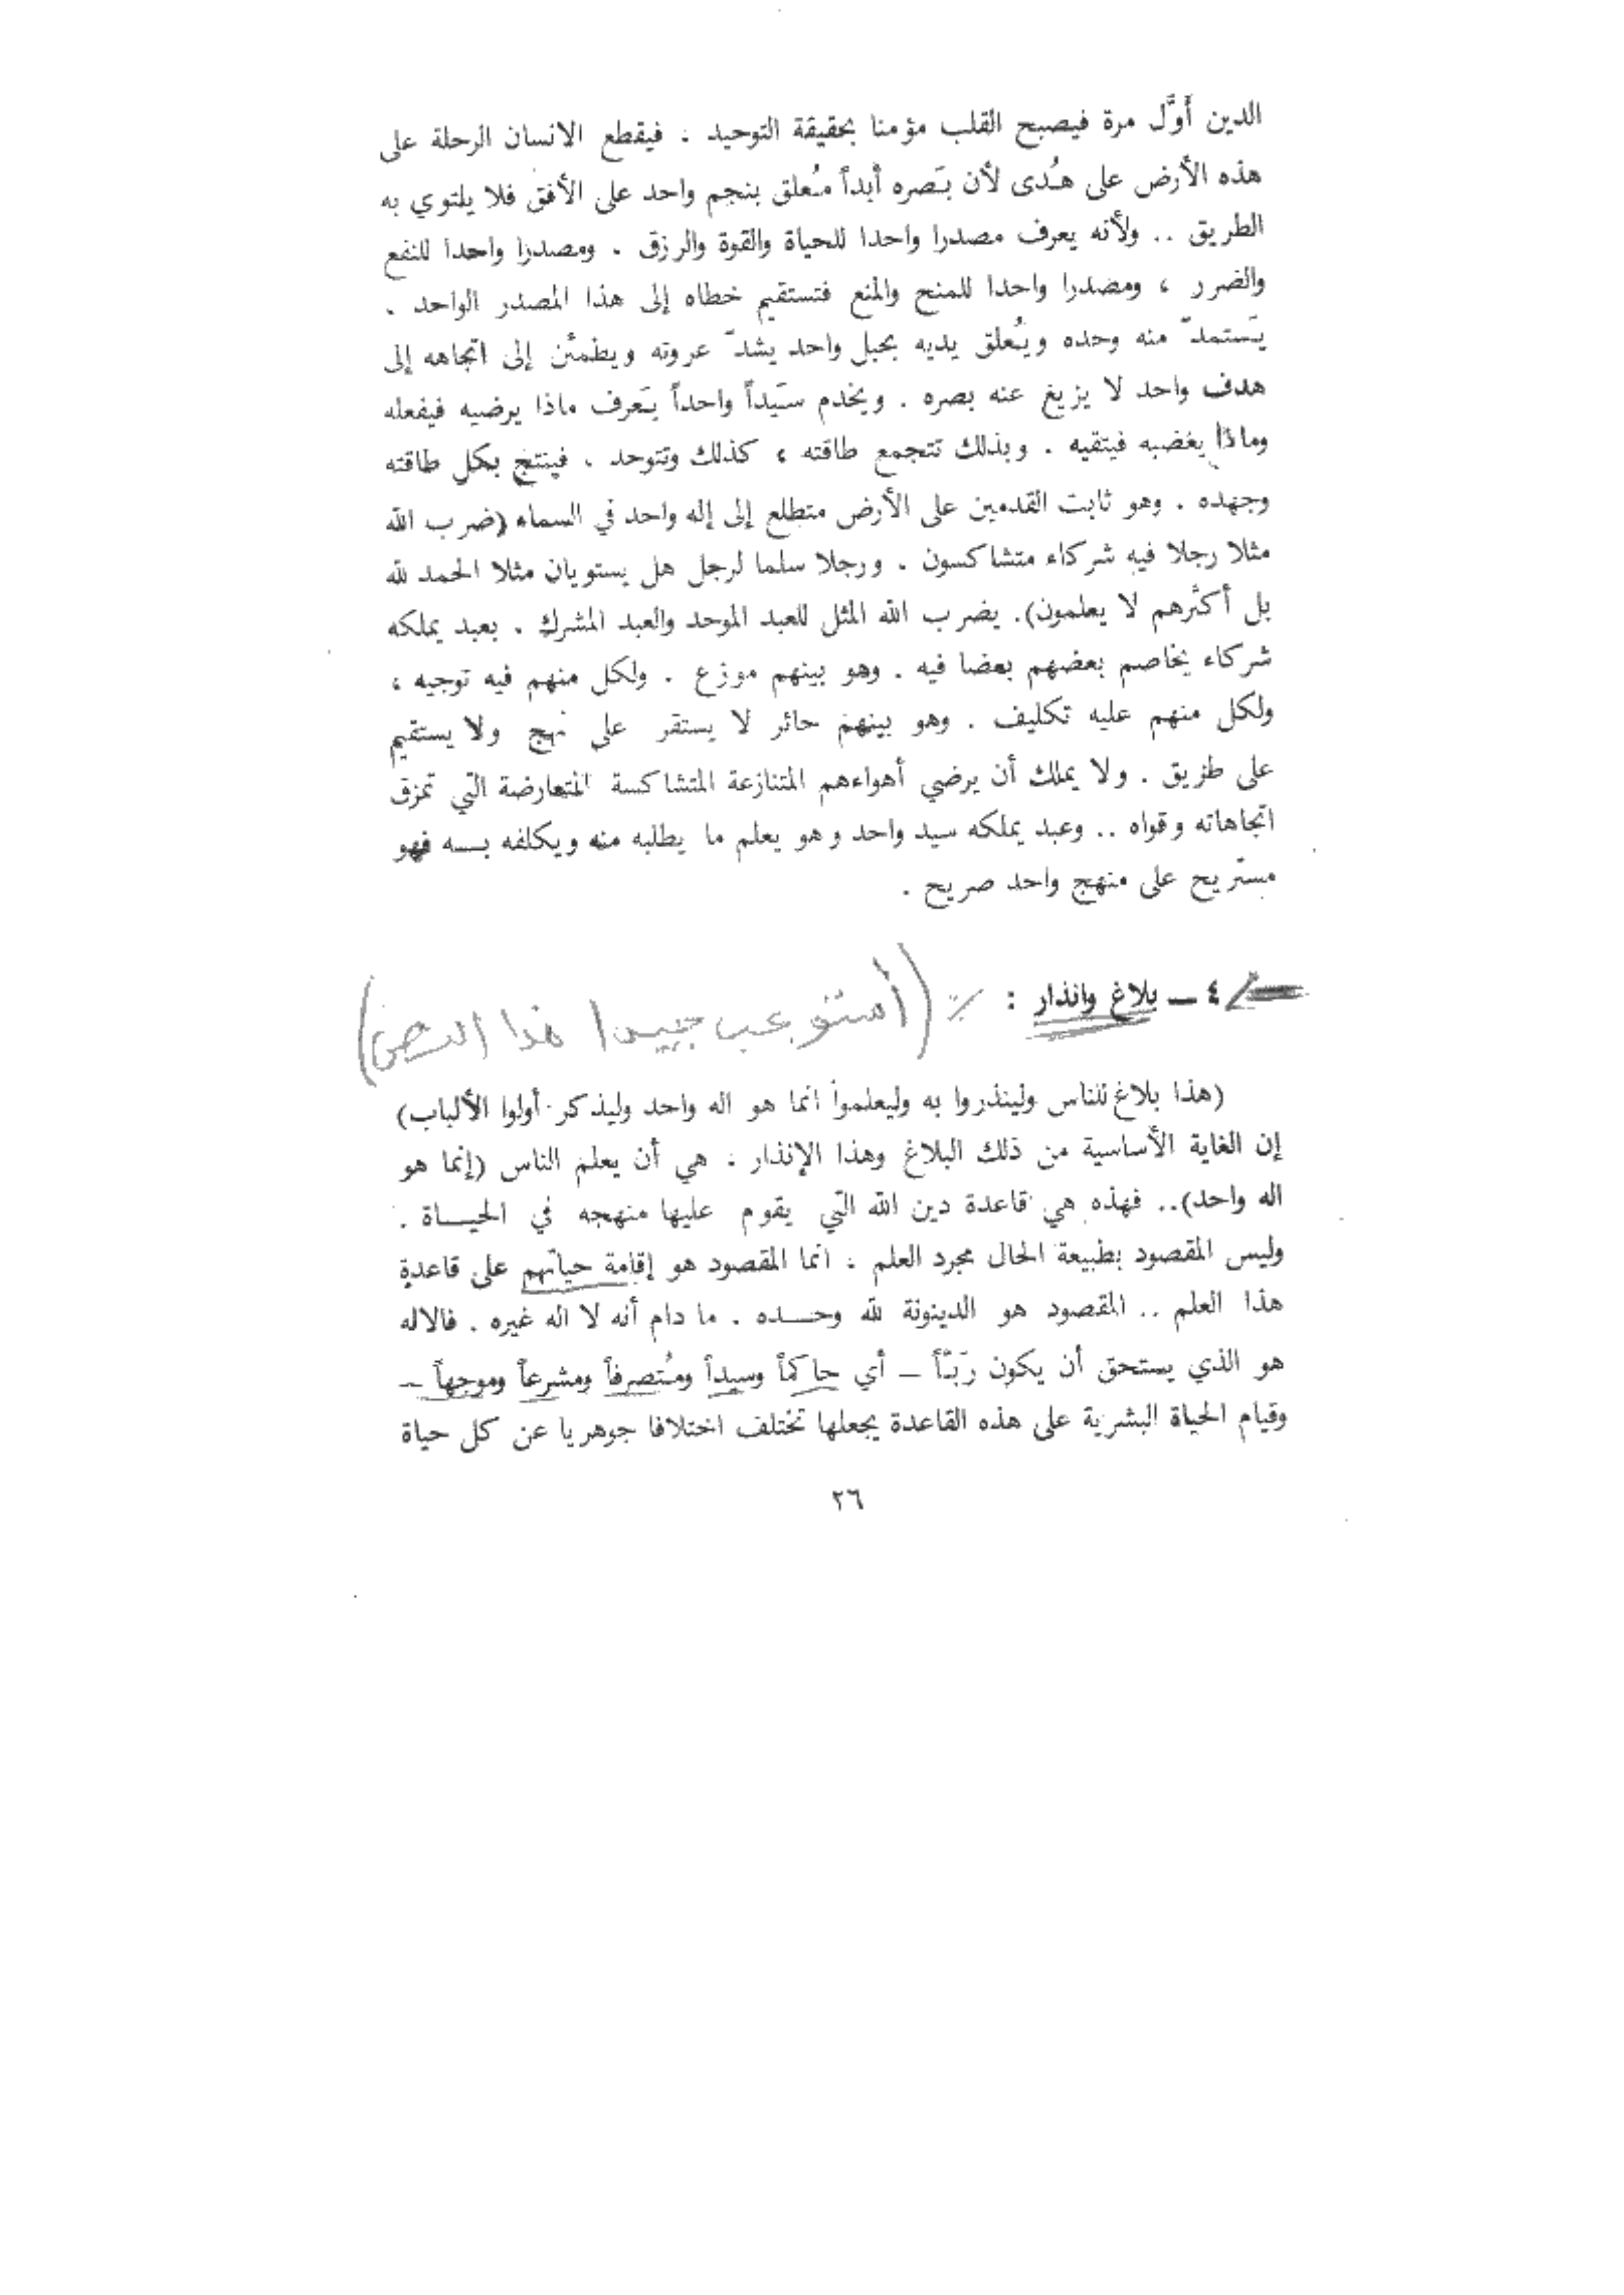 الدين أَوَّل مرة فيصبح القلب مؤمنا بحقيقة التوحيد . فيقطع الانسان الرحلة على
هذه الأرض على هُدى لأن بَصره أبداً مُعلق بنجم واحد على الأفق فلا يلتوي به
الطريق .. ولأنه يعرف مصدرا واحدا للحياة والقوة والرزق . ومصدرا واحدا للنفع
والضرر ، ومصدرا واحدا للمنح والمنع فتستقيم خطاه إلى هذا المصدر الواحد .
يَستمدّ منه وحده ويُعلق يديه بحبل واحد يشدّ عروته ويطمئن إلى اتجاهه إلى
هدف واحد لا يزيغ عنه بصره . ويخدم سَيداً واحداً يَعرف ماذا يرضيه فيفعله
وماذا يغضبه فيتقيه . وبذلك تتجمع طاقته ، كذلك وتتوحد . فينتج بكل طاقته
وجهده . وهو ثابت القدمين على الأرض متطلع إلى إله واحد في السماء (ضرب الله
مثلا رجلا فيه شركاء متشاكسون . ورجلا سلما لرجل هل يستويان مثلا الحمد لله
بل أكثرهم لا يعلمون). يضرب الله المثل للعبد الموحد والعبد المشرك . بعبد يملكه
شركاء يخاصم بعضهم بعضا فيه . وهو بينهم موزع . ولكل منهم فيه توجيه ،
ولكل منهم عليه تكليف . وهو بينهم حائر لا يستقر على نهج ولا يستقيم
على طريق . ولا يملك أن يرضي أهواءهم المتنازعة المتشاكسة المتعارضة التي تمزق
اتجاهاته وقواه .. وعبد يملكه سيد واحد وهو يعلم ما يطلبه منه ويكلفه بـه فهو
مستريح على منهج واحد صريح .
٤ ــ بلاغ وانذار : (أستوعب جيدا هذا النص)
(هذا بلاغ للناس ولينذروا به وليعلموا انما هو اله واحد وليذكر أولوا الألباب)
إن الغاية الأساسية من ذلك البلاغ وهذا الإنذار . هي أن يعلم الناس (إنما هو
اله واحد).. فهذه هي قاعدة دين الله التي يقوم عليها منهجه في الحيـــاة .
وليس المقصود بطبيعة الحال مجرد العلم . انما المقصود هو إقامة حياتهم على قاعدة
هذا العلم .. المقصود هو الدينونة لله وحـــده . ما دام أنه لا اله غيره . فالاله
هو الذي يستحق أن يكون رَبّاً – أي حاكماً وسيداً ومُتصرفاً ومشرعاً وموجهاً –
وقيام الحياة البشرية على هذه القاعدة يجعلها تختلف اختلافا جوهريا عن كل حياة
٢٦